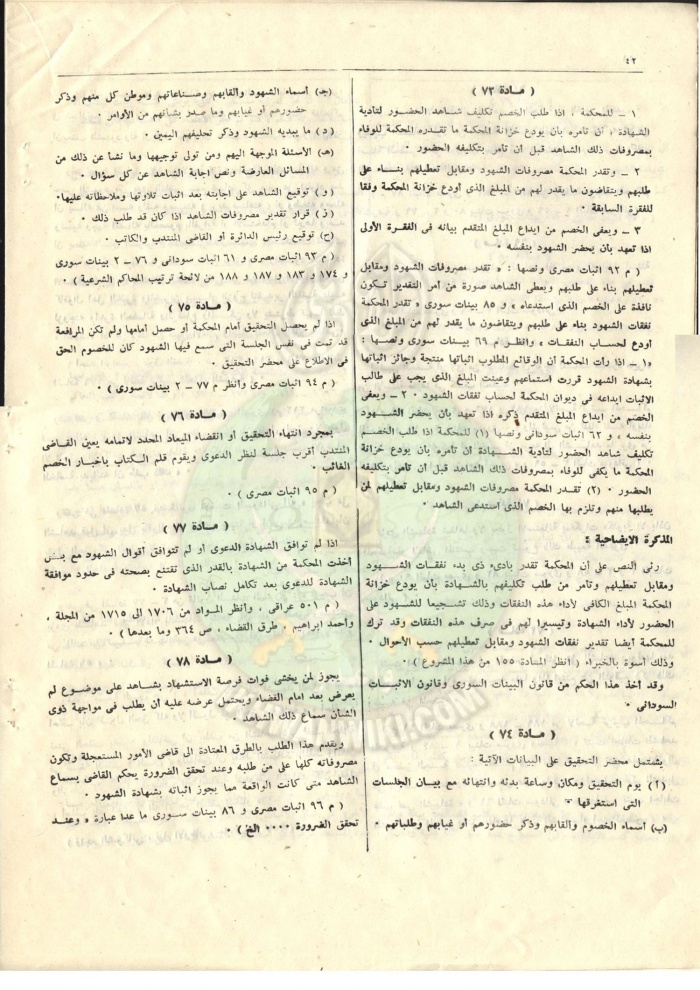 ٤٢
( مادة ٧٣ )
١ ــ للمحكمة ، اذا طلب الخصم تكليف شاهد الحضور لتأدية
الشهادة ، أن تأمره بأن يودع خزانة المحكمة ما تقدره المحكمة للوفاء
بمصروفات ذلك الشاهد قبل أن تأمر بتكليفه الحضور ٠
٢ ــ وتقدر المحكمة مصروفات الشهود ومقابل تعطيلهم بناء على
طلبهم ويتقاضون ما يقدر لهم من المبلغ الذى أودع خزانة المحكمة وفقا
للفقرة السابقة ٠
٣ ــ ويعفى الخصم من ايداع المبلغ المتقدم بيانه فى الفقرة الأولى
اذا تعهد بأن يحضر الشهود بنفسه ٠
( م ٩٢ اثبات مصرى ونصها : « تقدر مصروفات الشهود ومقابل
تعطيلهم بناء على طلبهم ويعطى الشاهد صورة من أمر التقدير تكون
نافذة على الخصم الذى استدعاه » و ٨٥ بينات سورى « تقدر المحكمة
نفقات الشهود بناء على طلبهم ويتقاضون ما يقدر لهم من المبلغ الذى
أودع لحساب النفقات » وانظر م ٦٩ بينات سورى ونصها :
«١ ــ اذا رأت المحكمة أن الوقائع المطلوب اثباتها منتجة وجائز اثباتها
بشهادة الشهود قررت استماعهم وعينت المبلغ الذى يجب على طالب
الاثبات ايداعه فى ديوان المحكمة لحساب نفقات الشهود ٠ ٢ ــ ويعفى
الخصم من ايداع المبلغ المتقدم ذكره اذا تعهد بأن يحضر الشهود
بنفسه » و ٦٢ اثبات سودانى ونصها (١) للمحكمة اذا طلب الخصم
تكليف شاهد الحضور لتأدية الشهادة أن تأمره بأن يودع خزانة
المحكمة ما يكفى للوفاء بمصروفات ذلك الشاهد قبل أن تأمر بتكليفه
الحضور ٠ (٢) تقدر المحكمة مصروفات الشهود ومقابل تعطيلهم لمن
يطلبها منهم وتلزم بها الخصم الذى استدعى الشاهد ٠
المذكرة الايضاحية :
رئى النص على أن المحكمة تقدر بادىء ذى بدء نفقات الشهود
ومقابل تعطيلهم وتأمر من طلب تكليفهم بالشهادة بأن يودع خزانة
المحكمة المبلغ الكافى لأداء هذه النفقات وذلك تشجيعا للشهود على
الحضور لأداء الشهادة وتيسيرا لهم فى صرف هذه النفقات وقد ترك
للمحكمة أيضا تقدير نفقات الشهود ومقابل تعطيلهم حسب الأحوال ٠
وذلك أسوة بالخبراء ( أنظر المادة ١٥٥ من هذا المشروع ) ٠
وقد أخذ هذا الحكم من قانون البينات السورى وقانون الاثبات
السودانى ٠
( مادة ٧٤ )
يشتمل محضر التحقيق على البيانات الآتية :
(٢) يوم التحقيق ومكان وساعة بدئه وانتهائه مع بيان الجلسات
التى استغرقها ٠
(ب) أسماء الخصوم وألقابهم وذكر حضورهم أو غيابهم وطلباتهم ٠
(جـ) أسماء الشهود وألقابهم وصناعاتهم وموطن كل منهم وذكر
حضورهم أو غيابهم وما صدر بشأنهم من الأوامر ٠
( د ) ما يبديه الشهود وذكر تحليفهم اليمين ٠
(هـ) الأسئلة الموجهة اليهم ومن تولى توجيهها وما نشأ عن ذلك من
المسائل العارضة ونص اجابة الشاهد عن كل سؤال ٠
( و ) توقيع الشاهد على اجابته بعد اثبات تلاوتها وملاحظاته عليها٠
( ز ) قرار تقدير مصروفات الشاهد اذا كان قد طلب ذلك ٠
(ح) توقيع رئيس الدائرة أو القاضى المنتدب والكاتب ٠
( م ٩٣ اثبات مصرى و ٦١ اثبات سودانى و ٧٦ ــ ٢ بينات سورى
و ١٧٤ و ١٨٣ و ١٨٧ و ١٨٨ من لائحة ترتيب المحاكم الشرعية ) ٠
( مادة ٧٥ )
اذا لم يحصل التحقيق أمام المحكمة أو حصل أمامها ولم تكن المرافعة
قد تمت فى نفس الجلسة التى سمع فيها الشهود كان للخصوم الحق
فى الاطلاع على محضر التحقيق ٠
( م ٩٤ اثبات مصرى وأنظر م ٧٧ ــ ٢ بينات سورى ) ٠
( مادة ٧٦ )
بمجرد انتهاء التحقيق أو انقضاء الميعاد المحدد لاتمامه يعين القاضى
المنتدب أقرب جلسة لنظر الدعوى ويقوم قلم الكتاب باخبار الخصم
الغائب ٠
( م ٩٥ اثبات مصرى ) ٠
( مادة ٧٧ )
اذا لم توافق الشهادة الدعوى أو لم تتوافق أقوال الشهود مع بعض
أخذت المحكمة من الشهادة بالقدر الذى تقتنع بصحته فى حدود موافقة
الشهادة للدعوى بعد تكامل نصاب الشهادة ٠
( م ٥٠١ عراقى ، وأنظر المواد من ١٧٠٦ الى ١٧١٥ من المجلة ،
وأحمد ابراهيم ، طرق القضاء ، ص ٣٦٤ وما بعدها ) ٠
( مادة ٧٨ )
يجوز لمن يخشى فوات فرصة الاستشهاد بشاهد على موضوع لم
يعرض بعد امام القضاء ويحتمل عرضه عليه أن يطلب فى مواجهة ذوى
الشأن سماع ذلك الشاهد ٠
ويقدم هذا الطلب بالطرق المعتادة الى قاضى الأمور المستعجلة وتكون
مصروفاته كلها على من طلبه وعند تحقق الضرورة يحكم القاضى بسماع
الشاهد متى كانت الواقعة مما يجوز اثباته بشهادة الشهود ٠
( م ٩٦ اثبات مصرى و ٨٦ بينات سورى ما عدا عبارة « وعند
تحقق الضرورة ٠٠٠٠ الخ ) ٠